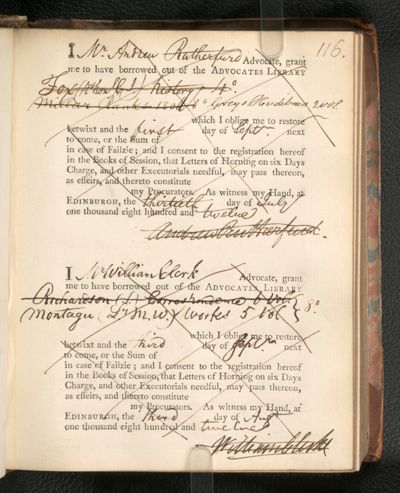 116.
I Mr. Andrew Rutherfurd Advocate, grant
me to have borrowed out of the ADVOCATES LIBRARY
Fox history 4o.
Millar Grey's Hudibras 2 vol.
which I oblige me to restore
betwixt and the first day of Septr. next
to come, or the Sum of
in case of Failzie; and I consent to the registration hereof
in the Books of Session, that Letters of Horning on six Days
Charge, and other Executorials needful, may pass thereon,
as effeirs, and thereto constitute
my Procurators. As witness my Hand, at
EDINBURGH, the thirtieth day of July
one thousand eight hundred and twelve
Andrew Rutherfurd.
I Mr William Clerk Advocate, grant
me to have borrowed out of the ADVOCATES LIBRARY
Richardson (S.) Correspondence 6 vol.
Montagu (Ly. M. W.) Works 5 Vol 8o.
which I oblige me to restore
betwixt and the third day of Septr. next
to come, or the Sum of
in case of Failzie; and I consent to the registration hereof
in the Books of Session, that Letters of Horning on six Days
Charge, and other Executorials needful, may pass thereon,
as effeirs, and thereto constitute
my Procurators. As witness my Hand, at
EDINBURGH, the third day of Augt
one thousand eight hundred and twelve
William Clerk